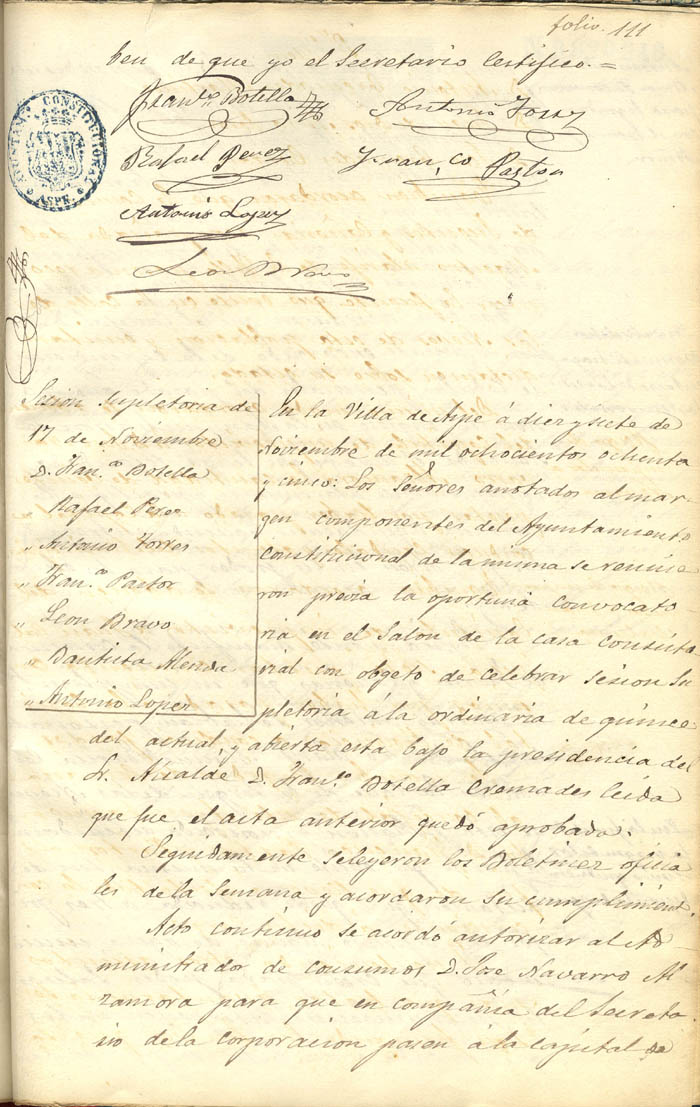 folio. 111
ben de que yo el Secretario Certifico.=
Fran.co Botella
Antonio Torres
Rafael Perez
Fran.co Pastor
Antonio Lopez
Leon Bravo
AYUNTAM.º CONSTITUCIONAL
ASPE.
Sesion supletoria de
17 de Noviembre
D. Fran.co Botella
" Rafael Perez
" Antonio Torres
" Fran.co Pastor
" Leon Bravo
" Bautista Alenda
" Antonio Lopez
En la Villa de Aspe á diez y siete de
Noviembre de mil ochocientos ochenta
y cinco: Los Señores anotados al mar-
gen componentes del Ayuntamiento
Constitucional de la misma se reunie
ron prévia la oportuna convocato
ria en el Salon de la casa Consisto
rial con obgeto de celebrar sesion su
pletoria á la ordinaria de quince
del actual, y abierta esta bajo la presidencia del
Sr. Alcalde D. Fran.co Botella Cremades leida
que fue el acta anterior quedó aprobada.
Seguidamente se leyeron los Boletines oficia
les de la Semana y acordaron su cumplimient.
Acto continuo se acordó autorizar al Ad
ministrador de consumos D. Jose Navarro Al
zamora para que en compañia del Secreta
rio de la corporacion pasen á la capital de